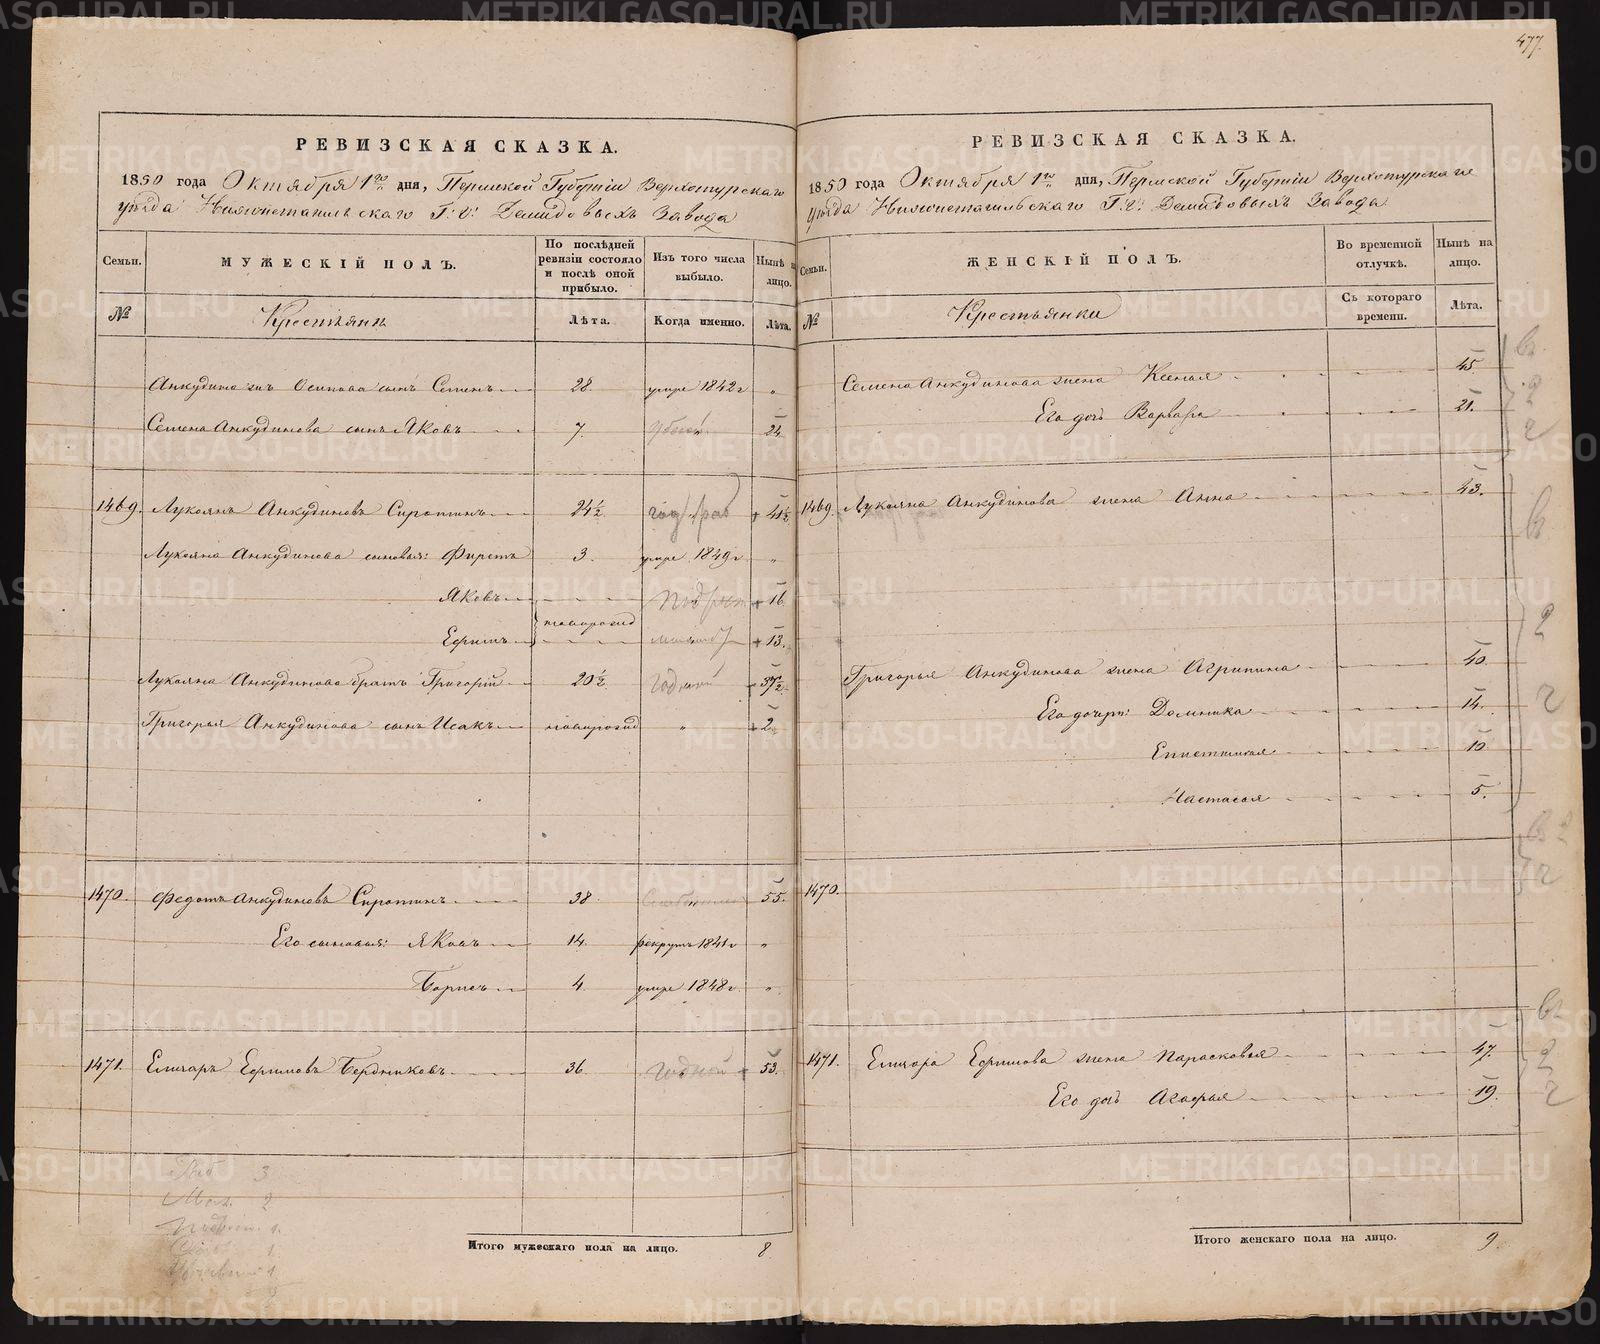 477.
РЕВИЗСКАЯ СКАЗКА.
1850 года Октября 1го дня, Пермской Губерніи Верхотурскаго
уѣзда Нижнетагильскаго Г.г. Демидовыхъ Завода
Семьи.
МУЖЕСКІЙ ПОЛЪ.
По послѣдней ревизіи состояло и послѣ оной прибыло.
Изъ того числа выбыло.
Нынѣ на лицо.
№
Крестьяне
Лѣта.
Когда именно.
Лѣта.
Анкудина Осипова сынъ Семенъ 28. умре 1842 г "
Семена Анкудинова сынъ Яковъ 7. 24
1469. Лукоянъ Анкудиновъ Сиротинъ 24½ 41½
Лукояна Анкудинова сыновья: Фирстъ 3. умре 1849 г "
Яковъ 16
Ефимъ новорожд 13.
Лукояна Анкудинова братъ Григорій 20½ годный 37½
Григорья Анкудинова сынъ Исакъ новорожд " 2
1470. Федотъ Анкудиновъ Сиротинъ 38 55.
Его сыновья: Яковъ 14. рекрутъ 1841 г "
Борисъ 4. умре 1848 г "
1471. Елизаръ Ефимовъ Бердниковъ 36 годной 53.
Итого мужескаго пола на лицо. 8
РЕВИЗСКАЯ СКАЗКА.
1850 года Октября 1го дня, Пермской Губерніи Верхотурскаго
уѣзда Нижнетагильскаго Г.г. Демидовыхъ Завода
Семьи.
ЖЕНСКІЙ ПОЛЪ.
Во временной отлучкѣ.
Нынѣ на лицо.
№
Крестьянки
Съ котораго времени.
Лѣта.
Семена Анкудинова жена Ксенья 45.
Его дочь Варвара 21.
1469. Лукояна Анкудинова жена Анна 43.
Григорья Анкудинова жена Агрипина 40.
Его дочери: Домника 14.
Епистимья 10
Настасья 5.
1470.
1471. Елизара Ефимова жена Парасковья 47.
Его дочь Агафья 19.
Итого женскаго пола на лицо. 9.
METRIKI.GASO-URAL.RU